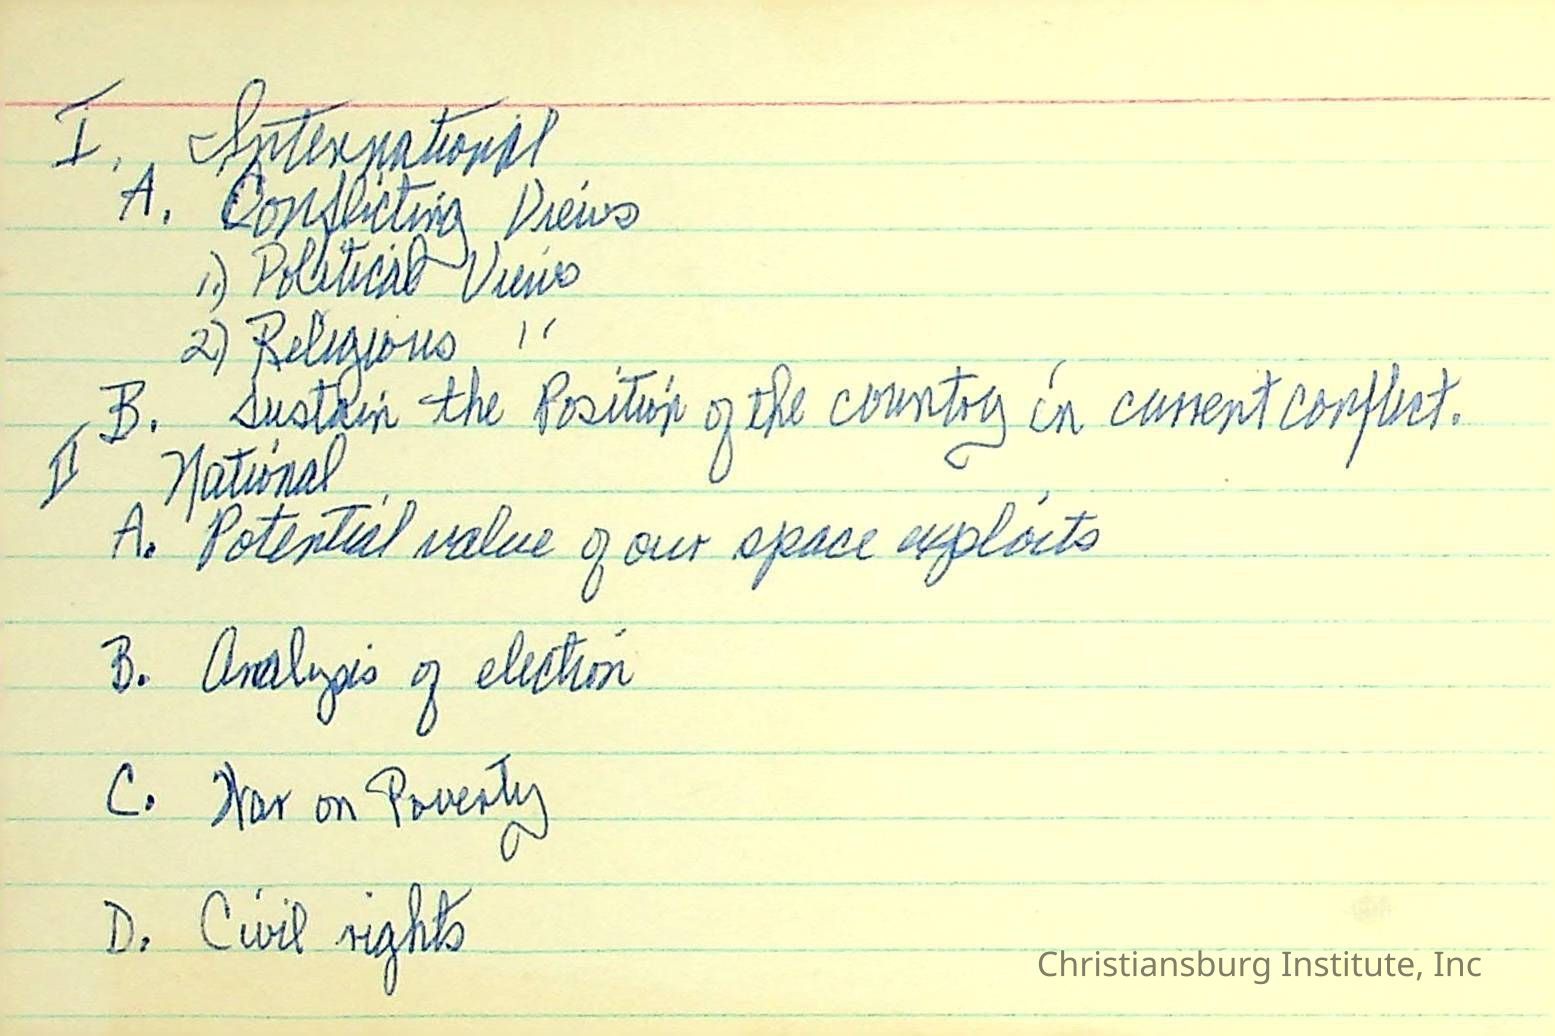 I. International
A. Conflicting Views
1.) Political Views
2) Religious "
B. Sustain the Position of the country in current conflict.
II National
A. Potential value of our space exploits
B. Analysis of election
C. War on Poverty
D. Civil rights
Christiansburg Institute, Inc